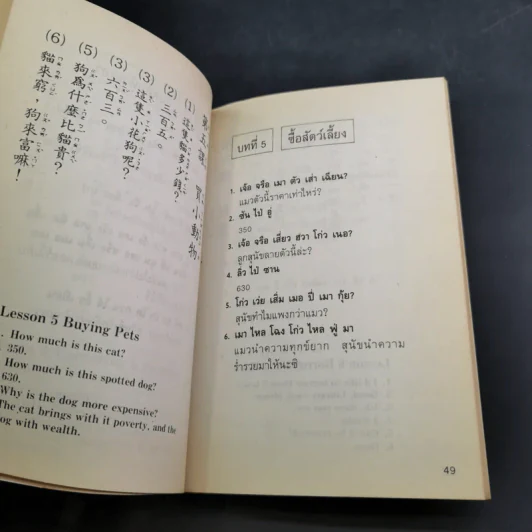 第五課 買小動物
(1) 這隻貓多少錢?
(2) 三百五。
(3) 這隻小花狗呢?
(3) 六百三。
(5) 狗爲什麼比貓貴?
(6) 貓來窮,狗來富嘛!
Lesson 5 Buying Pets
. How much is this cat?
350.
How much is this spotted dog?
630.
Why is the dog more expensive?
The cat brings with it poverty, and the
og with wealth.
บทที่ 5
ซื้อสัตว์เลี้ยง
1. เจ้อ จรือ เมา ตัว เส่า เฉียน?
แมวตัวนี้ราคาเท่าไหร่?
2. ซัน ไป่ อู่
350
3. เจ้อ จรือ เสี่ยว ฮวา โก่ว เนอ?
ลูกสุนัขลายตัวนี้ล่ะ?
4. ลิ่ว ไป่ ซาน
630
5. โก่ว เว่ย เสิ่ม เมอ ปี่ เมา กุ้ย?
สุนัขทำไมแพงกว่าแมว?
6. เมา ไหล โฉง โก่ว ไหล ฟู่ มา
แมวนำความทุกข์ยาก สุนัขนำความ
ร่ำรวยมาให้นะซิ
49